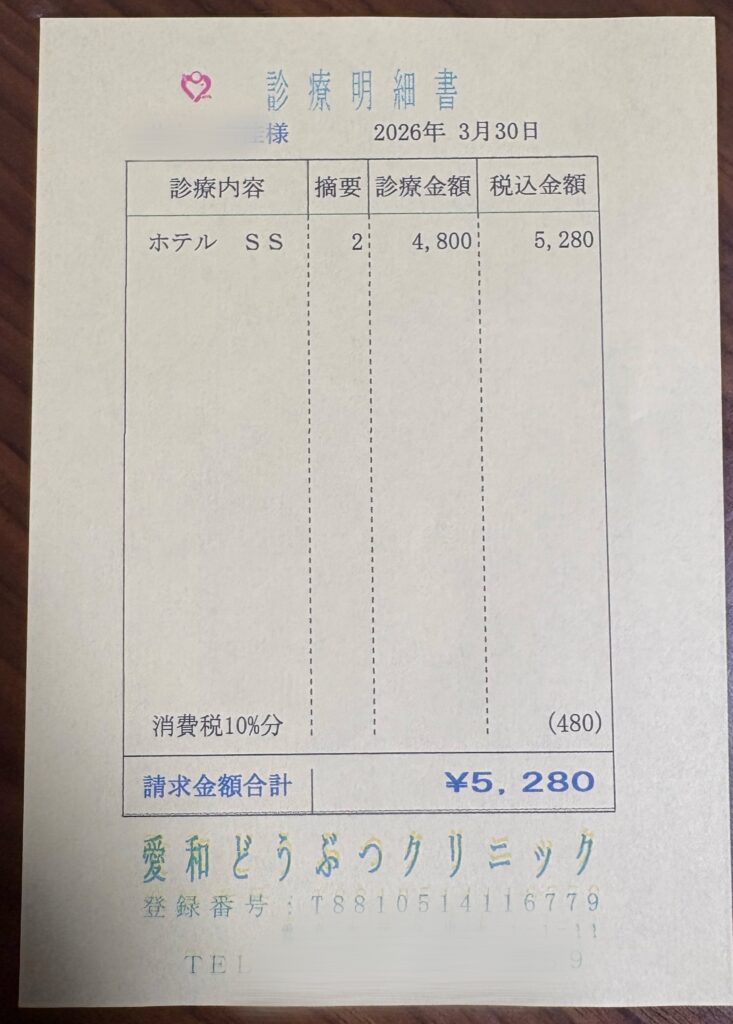 診療明細書
様 2026年 3月30日
診療内容 摘要 診療金額 税込金額
ホテル ＳＳ 2 4,800 5,280
消費税10%分 (480)
請求金額合計 ¥5,280
愛和どうぶつクリニック
登録番号：T8810514116779
TEL 9